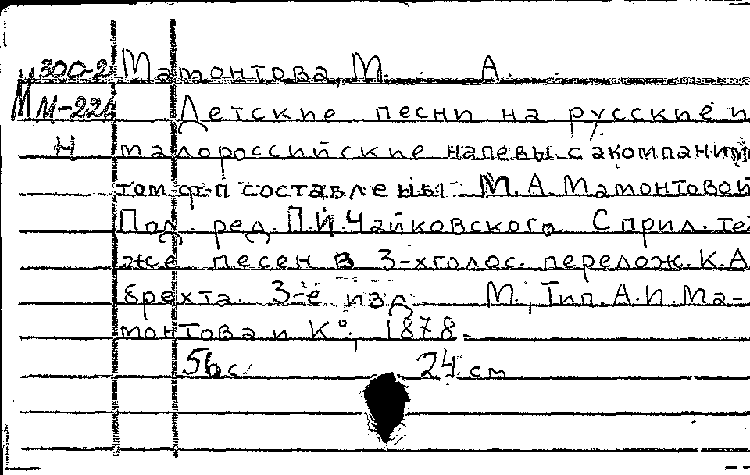 М 300-2 Мамонтова, М. А.
М-226 Детские песни на русские и
н малороссийские напевы с акомпаним
том ф-п составлены М.А. Мамонтовой
Под ред. П.И. Чайковского. С прил. те
же песен в 3-х голос. перелож. К.А
брехта. 3-е изд. М., Тип. А.И. Ма-
монтова и К°, 1878.
56 с. 24 см